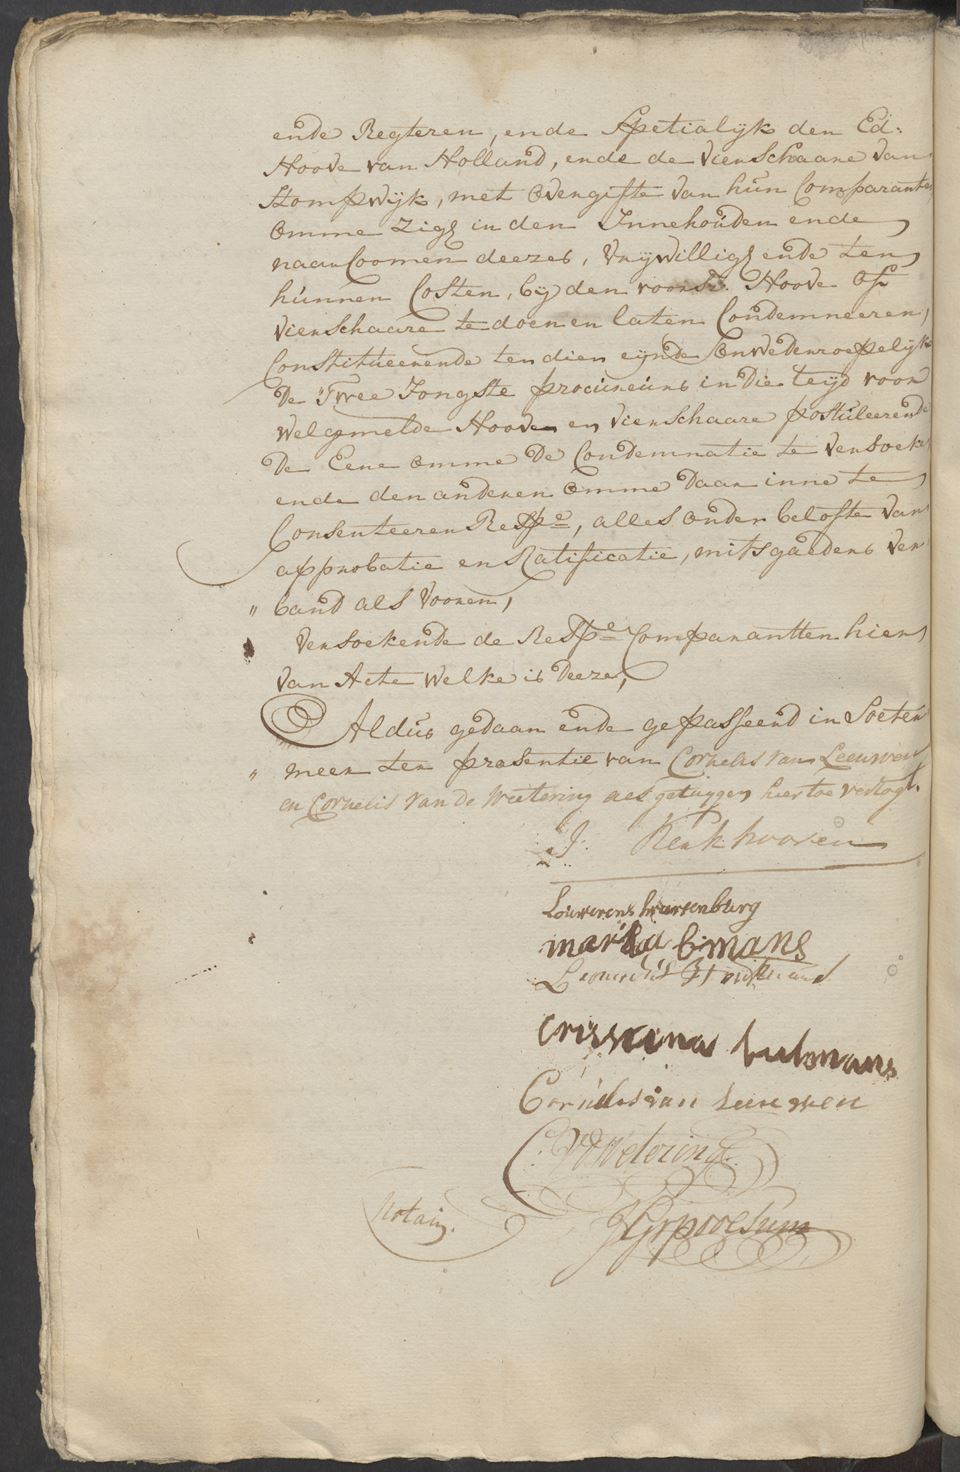 ende Regteren, ende Spetialijk den Ed:
Hoove van Holland, ende de Vierschaare van
Stompwijk, met overgifte van hun Comparanten
omme zigh in den Innehouden ende
naarcoomen deezes, vrijwilligh ende ten
hunnen Costen, bij den voorsz. Hoove of
Vierschaare te doen en laten Condemneeren,
Constitueerende ten dien eijnde onwederroepelijk
De Twee Jongste procureurs in die teijd voor
welgemelde Hoove en Vierschaare postuleerende
De Eene omme De Condemnatie te versoeke,
ende den anderen omme Daar inne te
Consenteeren Respe, alles onder belofte van
approbatie en Ratificatie, mitsgaders ver
" band als Vooren,
Versoekende de Respe Comparantten hier
van Acte welke is Deeze,
Aldus gedaan ende gepasseerd in Soeter
" meer ter presentie van Cornelis van Leeuwen
en Cornelis van de Wetering als getuygen hier toe versogt.
J. Kerkhooven
Louwerens
maria bmans
crisstina bulmans
Cornelis van Leeuwen
C. VD Wetering
Notairs.